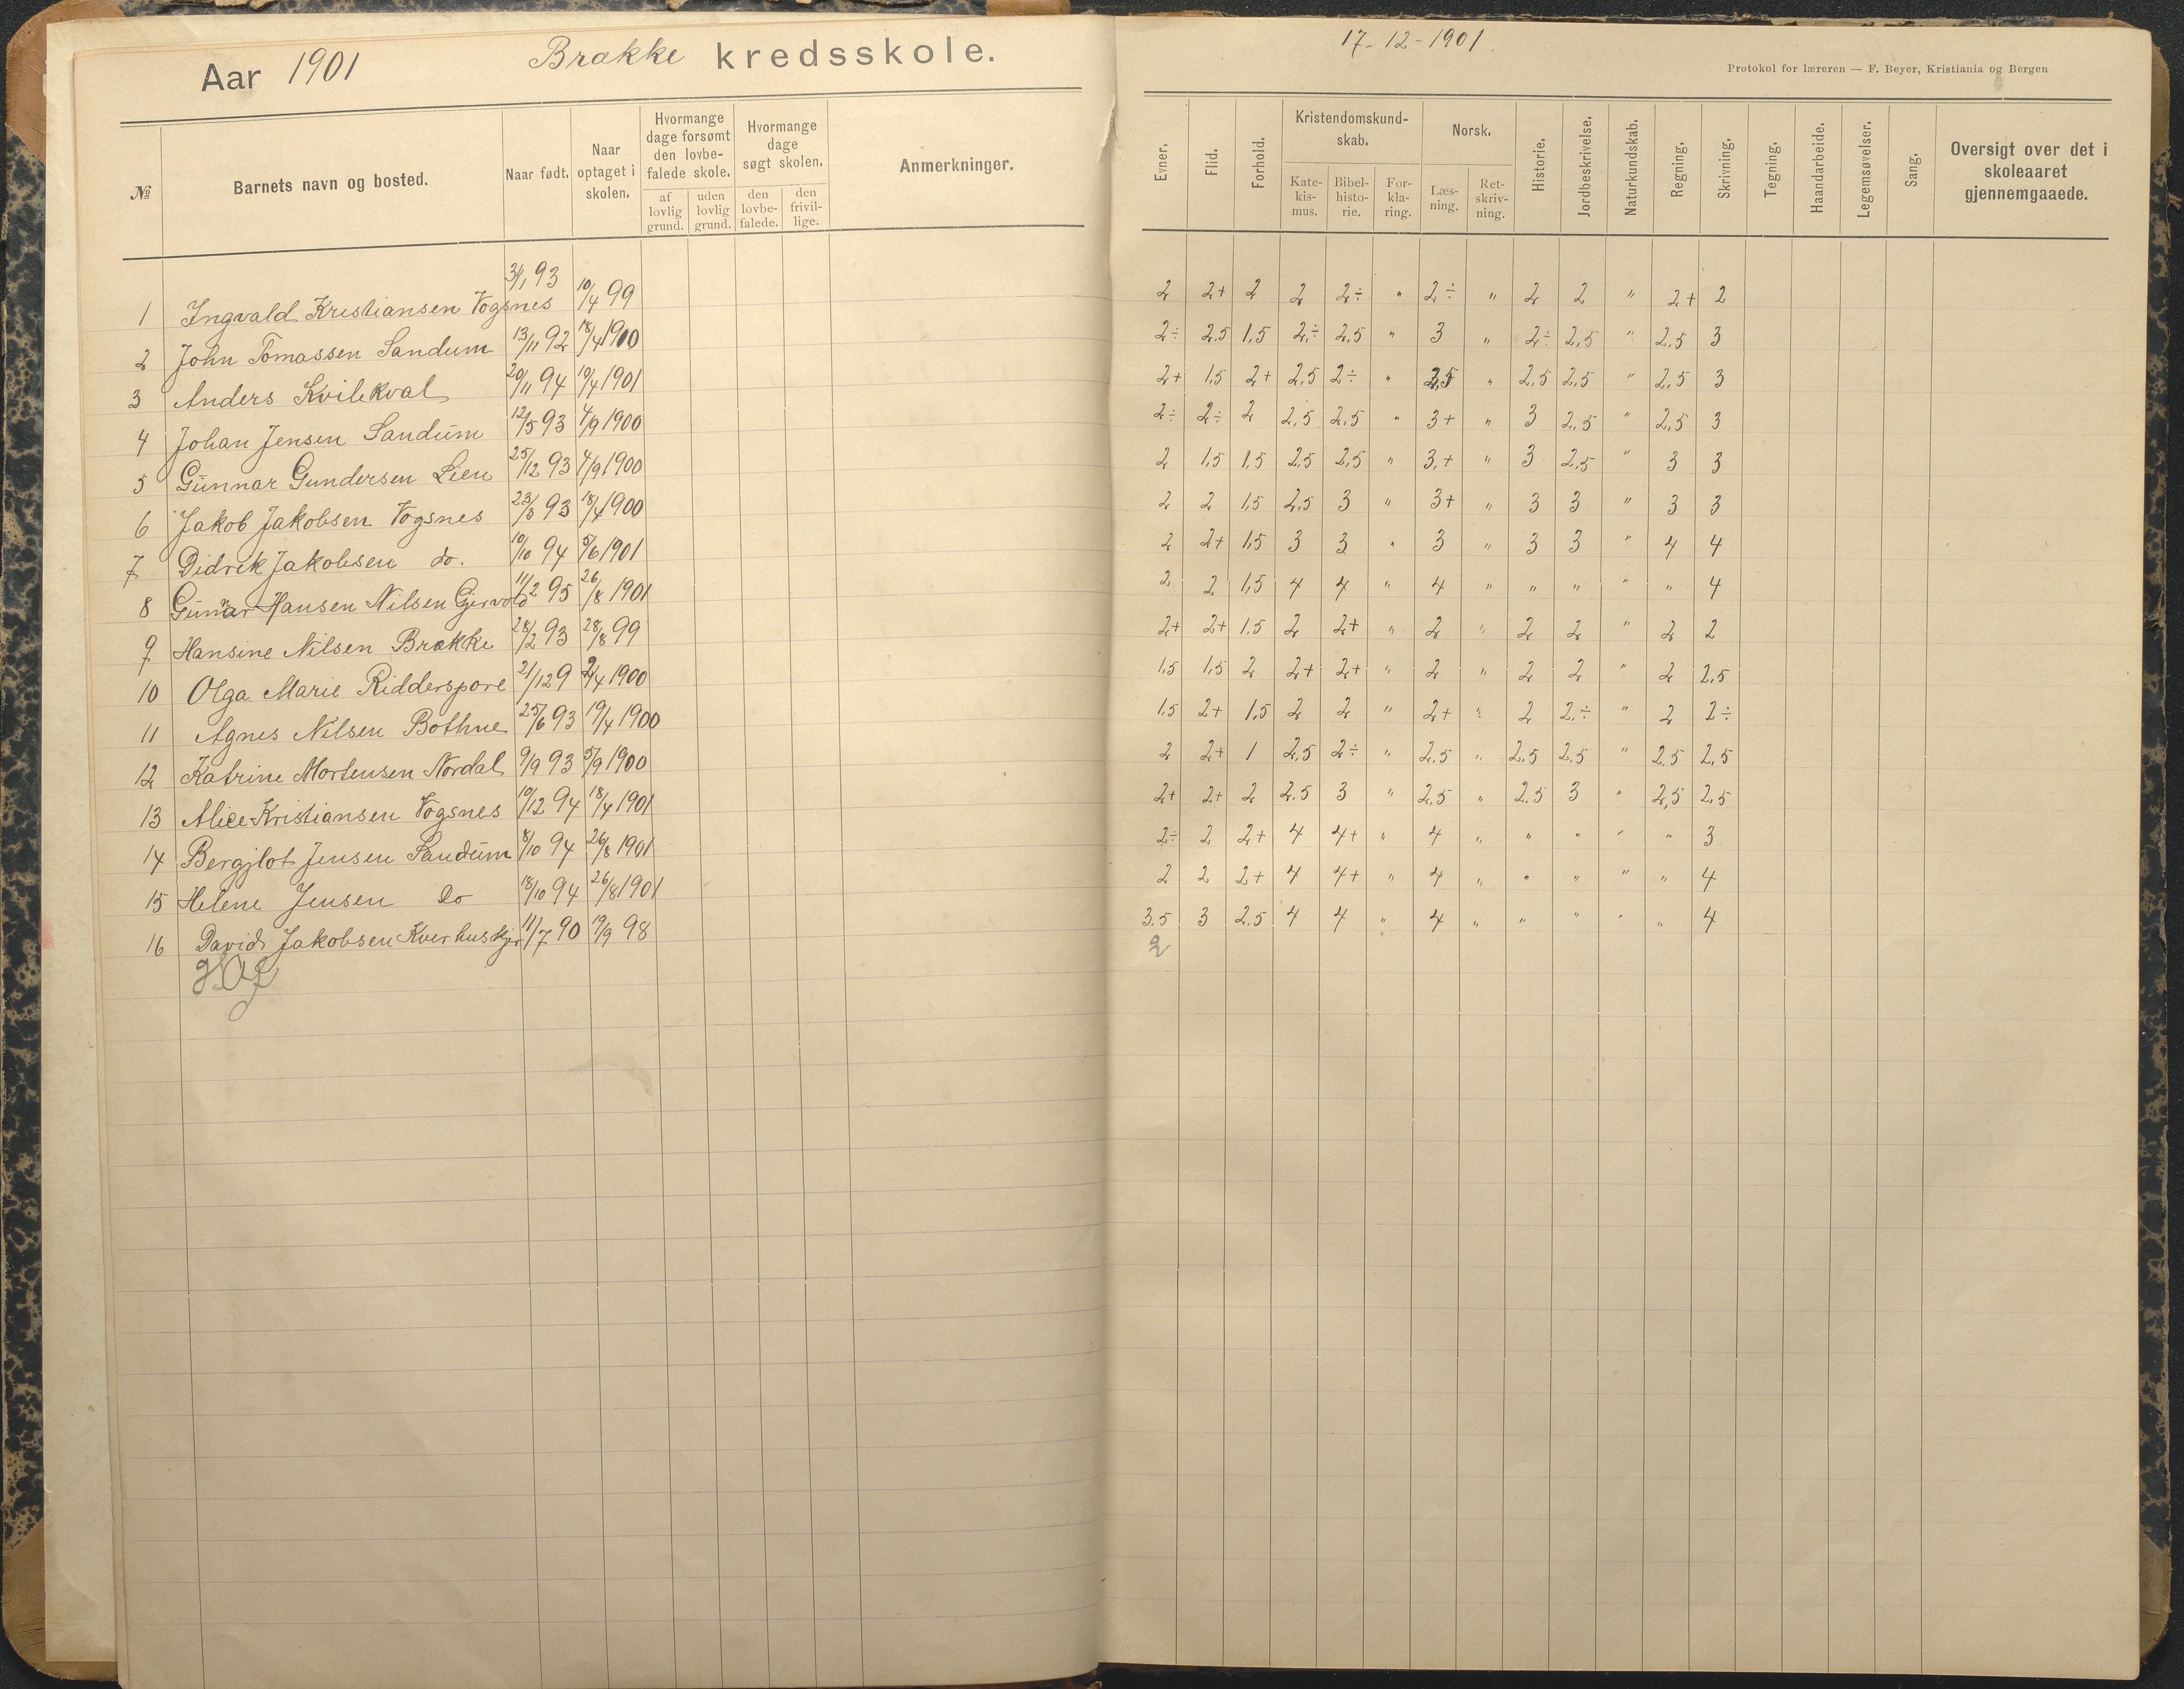 Aar 1901 Brække kredsskole.
№ Barnets navn og bosted. Naar født. Naar optaget i skolen. Hvormange dage forsømt den lovbefalede skole. af lovlig grund. uden lovlig grund. Hvormange dage søgt skolen. den lovbefalede. den frivillige. Anmerkninger.
1 Ingvald Kristiansen Vogsnes 3/1 93 10/4 99
2 John Tomassen Sandum 13/11 92 18/4 1900
3 Anders Kvilekval 20/11 94 19/4 1901
4 Johan Jensen Sandum 12/5 93 4/9 1900
5 Gunnar Gundersen Lien 25/12 93 4/9 1900
6 Jakob Jakobsen Vogsnes 23/3 93 18/4 1900
7 Didrek Jakobsen do. 10/10 94 5/6 1901
8 Gunnar Hansen Nilsen Gjervold 11/2 95 26/8 1901
9 Hansine Nilsen Brække 28/2 93 28/8 99
10 Olga Marie Ridderspore 21/12 9 2/4 1900
11 Agnes Nilsen Bothne 25/6 93 19/4 1900
12 Katrine Mortensen Nordal 9/9 93 5/9 1900
13 Alice Kristiansen Vogsnes 19/12 94 18/4 1901
14 Bergjlot Jensen Sandum 8/10 94 26/8 1901
15 Helene Jensen Do 18/10 94 26/8 1901
16 David Jakobsen Kverhuskjer 11/7 90 19/9 98
17-12-1901
Protokol for læreren — F. Beyer, Kristiania og Bergen
Evner. Flid. Forhold. Kristendomskundskab. Katekismus. Bibelhistorie. Forklaring. Norsk. Læsning. Retskrivning. Historie. Jordbeskrivelse. Naturkundskab. Regning. Skrivning. Tegning. Haandarbeide. Legemsøvelser. Sang. Oversigt over det i skoleaaret gjennemgaaede.
2 2+ 2 2 2÷ " 2÷ " 2 2 " 2+ 2
2÷ 2,5 1,5 2÷ 2,5 " 3 " 2÷ 2,5 " 2,5 3
2+ 1,5 2+ 2,5 2÷ " 2,5 " 2,5 2,5 " 2,5 3
2÷ 2÷ 2 2,5 2,5 " 3+ " 3 2,5 " 2,5 3
2 1,5 1,5 2,5 2,5 " 3,+ " 3 2,5 " 3 3
2 2 1,5 2,5 3 " 3+ " 3 3 " 3 3
2 2+ 1,5 3 3 " 3 " 3 3 " 4 4
2 2 1,5 4 4 " 4 " " " " " 4
2+ 2+ 1,5 2 2+ " 2 " 2 2 " 2 2
1,5 1,5 2 2+ 2+ " 2 " 2 2 " 2 2,5
1,5 2+ 1,5 2 2 " 2+ " 2 2,÷ " 2 2÷
2 2+ 1 2,5 2÷ " 2,5 " 2,5 2,5 " 2,5 2,5
2+ 2+ 2 2.5 3 " 2,5 " 2.5 3 " 2,5 2,5
2÷ 2 2+ 4 4+ " 4 " " " " " 3
2 2 2+ 4 4+ " 4 " " " " " 4
3.5 3 2.5 4 4 " 4 " " " " " 4
2